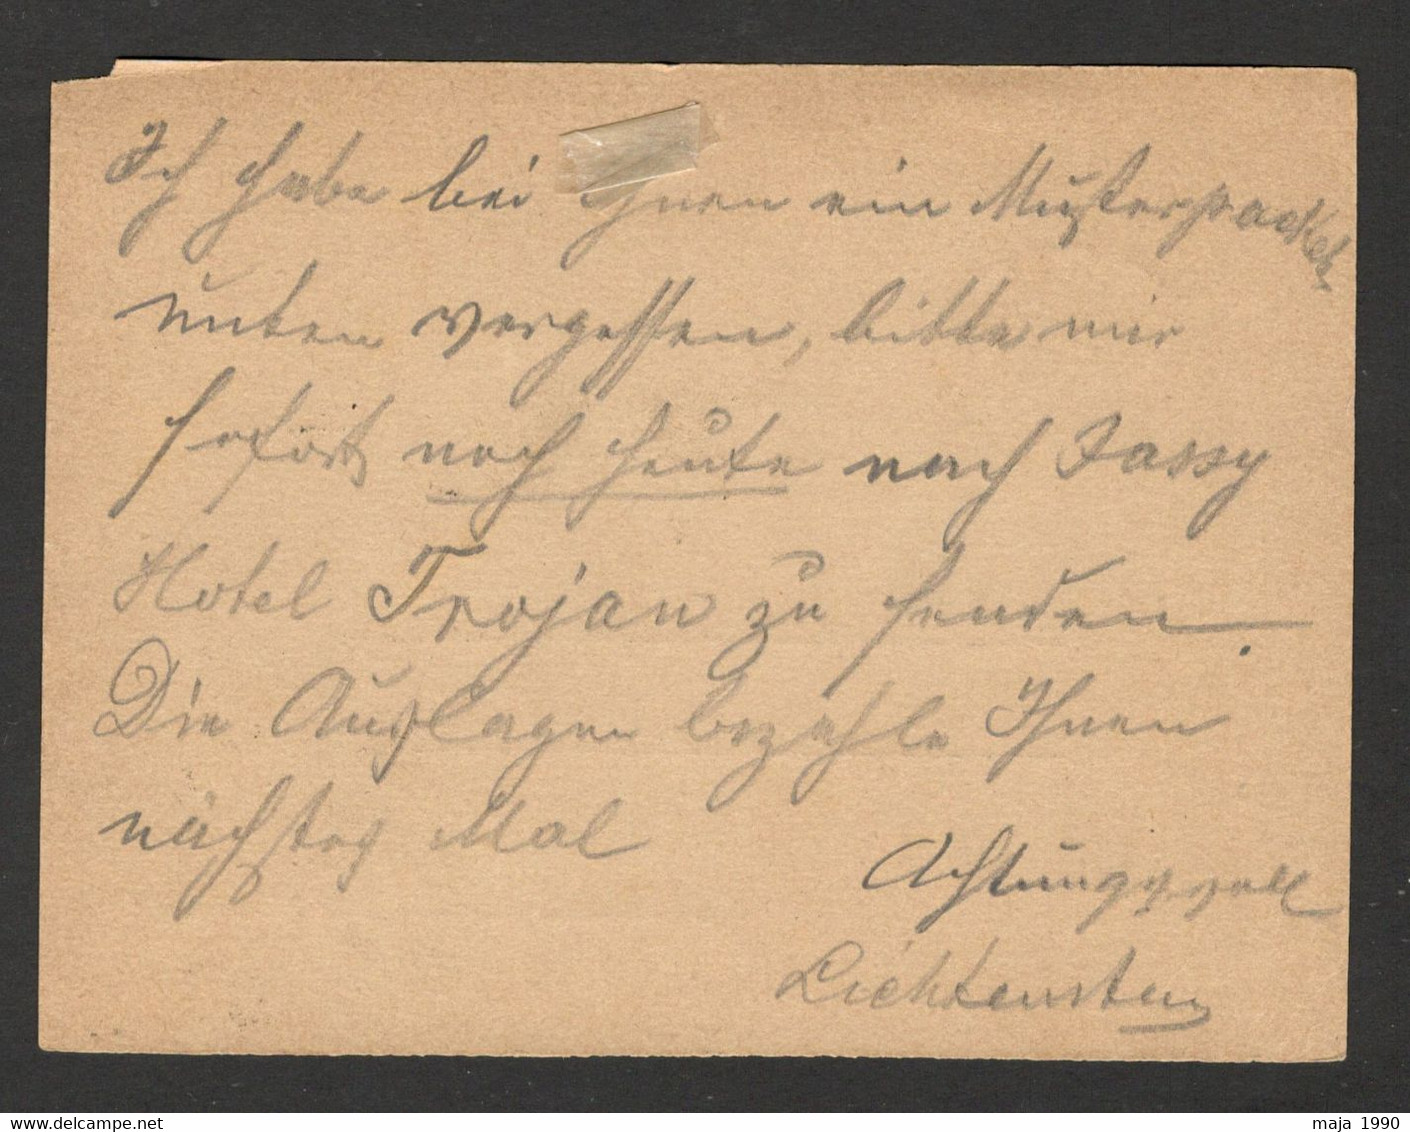 Ich habe bei Ihnen ein Musterpacket
unten vergessen, bitte mir
sofort noch heute nach Jassy
Hotel Trojan zu senden.
Die Auslagen bezahle Ihnen
nächstes Mal
Achtungsvoll
Lichtenstein
maja 1990